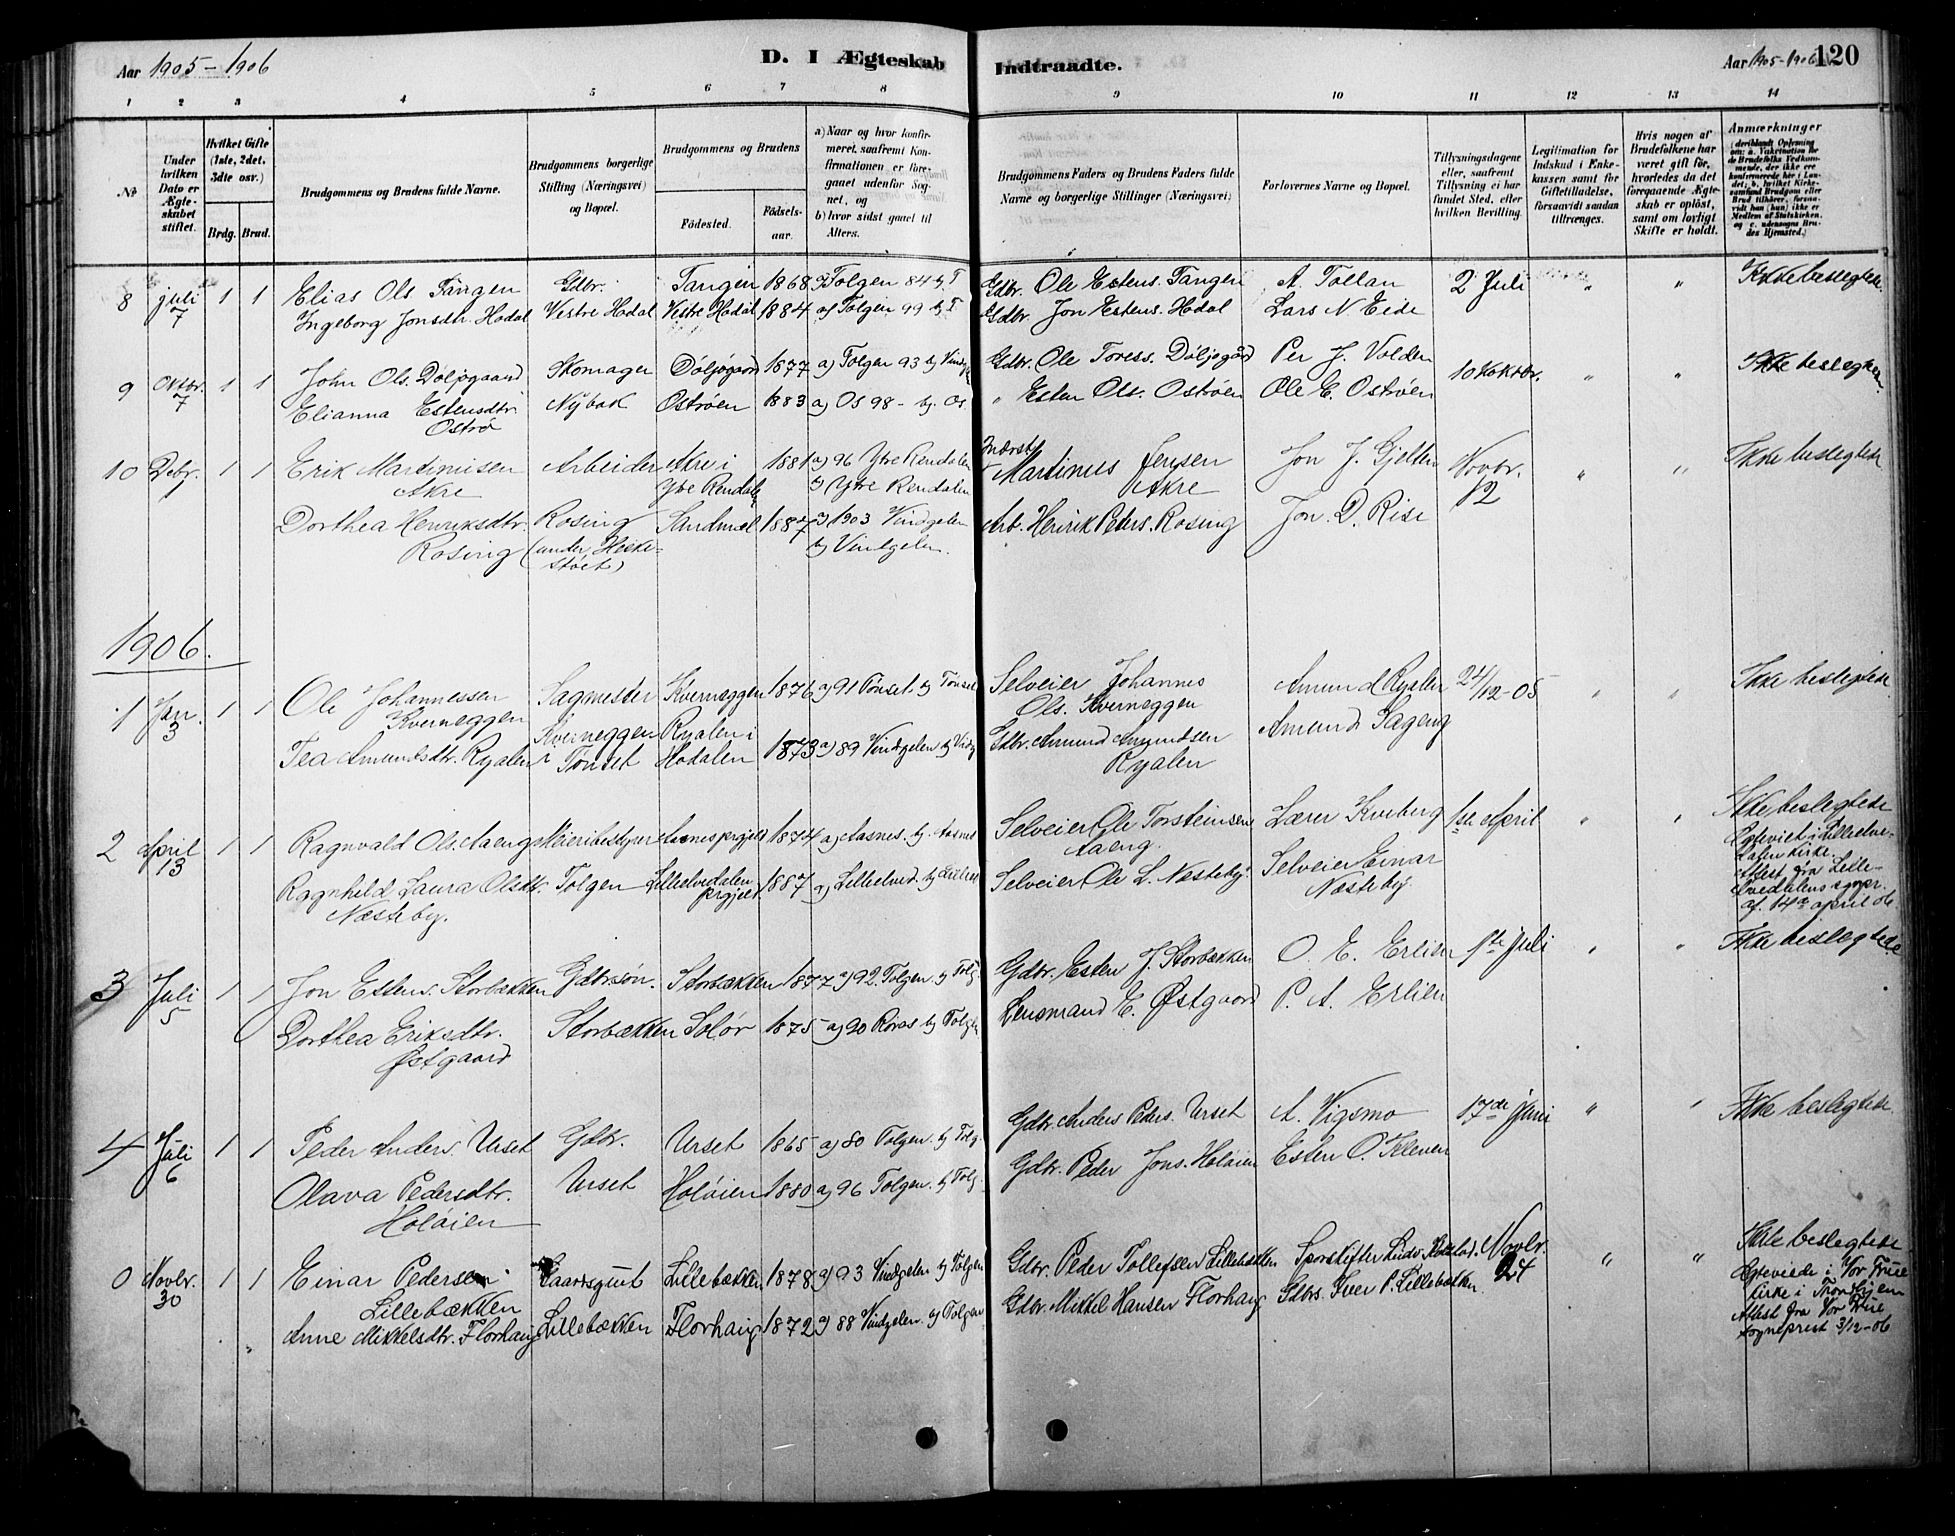 Aar 1905-1906
D. I Ægteskab Indtraadte.
Aar 1905-1906 120
1 2 3 4 5 6 7 8 9 10 11 12 13 14
No
Under hvilken Dato er Ægteskabet stiftet.
Hvilket Gifte (1ste, 2det, 3die osv.)
Brdg. Brud.
Brudgommens og Brudens fulde Navne.
Brudgommens borgerlige Stilling (Næringsvei) og Bopæl.
Brudgommens og Brudens
Fødested. Fødsels-aar.
a) Naar og hvor konfirmeret, saafremt Konfirmationen er foregaaet udenfor Sognet, og
b) hvor sidst gaaet til Alters.
Brudgommens Faders og Brudens Faders fulde Navne og borgerlige Stillinger (Næringsvei)
Forlovernes Navne og Bopæl.
Tillysningsdagene eller, saafremt Tillysning ei har fundet Sted, efter hvilken Bevilling.
Legitimation for Indskud i Enkekassen samt for Giftetilladelse, forsaavidt saadan tiltrænges.
Hvis nogen af Brudefolkene har været gift før, hvorledes da det foregaaende Ægteskab er opløst, samt om lovligt Skifte er holdt.
Anmærkninger
8 juli 7 1 1 Elias Ols Tangen Gdbr. Tangen 1868 a) Tolgen 84 b) T Gdbr. Ole Estens. Tangen A. Tollan 2 Juli " " Ikke beslegtede.
Ingeborg Jonsdtr. Hodal Vestre Hodal Vestre Hodal 1884 a) Tolgen 99 b) T Gdbr. Jon Estens. Hodal Lars N Eide
9 Oktbr. 7 1 1 John Ols. Døljogaard Skomager Døljogaard 1877 a) Tolgen 93 b) Gdbr. Ole Toress. Døljogård Per J. Volden 1 Oktbr. " " Ikke beslegtede
Elianna Estensdtr. Nybak Østrøen 1883 a) Os 98 - b. Os. " Esten Ols. Østrøen Ole E. Østrøen
Østrø
10 Debr. 1 1 Erik Martinusen Arbeider Akre i 1881 a) 96 Ytre Rendalen Martinus Jensen Jon J. Gjelten Novbr. 12 " " Ikke beslegtede
Akre Ytre Rendalen b) Ytre Rendalen Akre
Dorthea Henriksdtr. Rosing Sandmæl 1887 a) 1903 Vindgelen Arb. Henrik Peders. Rosing Jon. D. Rise
Rosing (under b) Vindgelen.
1906.
1 Jan. 3 1 1 Ole Johannessen Sagmester Kverneggen 1876 a) 91 Tønset. b) Tønset Selveier Johannes Amund Ryalen 24/12-05 " " Ikke beslegtede
Kverneggen Kverneggen Ryalen i Ols. Kverneggen Amund Sageng
Tea Amundsdtr. Ryalen Tønset Hodalen 1873 a) 89 Vindgelen b) Gdbr. Amund Amundsen
Ryalen
2 April 13 1 1 Ragnvald Ols. Aaeng Meieribestyrer Aasnes prgjeld 1874 a) Aasnes. b) Aasnes Selveier Ole Torsteinsen Lærer Kveberg 1ste April " " Ikke beslegtede
Aaeng. Egteviet i Lilleelve-
Ragnhild Laura Olsdtr. Tolgen Lilleelvedalen 1887 a) Lilleelved. b) Selveier Ole L. Næsteby. Selveier Einar dalen kirke.
Næsteby. prgjeld. Næsteby. Attest fra Lille-
elvedalens sognepr.
af. 14de april 06.
3 Juli 5 1 1 Jon Estens. Storbækken Gdbrsøn. Storbækken 1877 a) 92. Tolgen. b) Tolg Gdbr. Esten J. Storbækken O. E. Erlien 1ste Juli " " Ikke beslegtede
Dorthea Eriksdtr. Storbækken Solør 1875 a) 90 Røros b) Tolgen Lensmand E. Østgaard P. A. Erlien
Østgaard
4 Juli 6 1 1 Peder Anders. Urset Gdbr. Urset 1865 a) 80 Tolgen. b) Tolg. Gdbr. Anders Peders. Urset A. Vigsmo 17de Juni " " Ikke beslegtede.
Olava Pedersdtr. Urset Holøien 1880 a) 96 Tolgen. b) Tolg. Gdbr. Peder Jons. Holøien Esten O. Kleven
Holøien
0 Novbr. 30 1 1 Einar Pedersen Gaardsgut Lillebækken 1878 a) 93 Vindgelen b) Tolgen Gdbr. Peder Tollefsen Lillebækken Novbr. 24 " " Ikke beslegtede
Lillebækken Egteviede i Vor Frue
Anne Mikkelsdtr. Florhaug Lillebækken Florhaug 1872 a) 88 Vindgelen. b) Tolgen Gdbr. Mikkel Hansen Florhaug Gdbrs. Iver P. Lillebækken kirke i Trondhjem
Attest fra Vor Frue
sogneprest 3/12-06